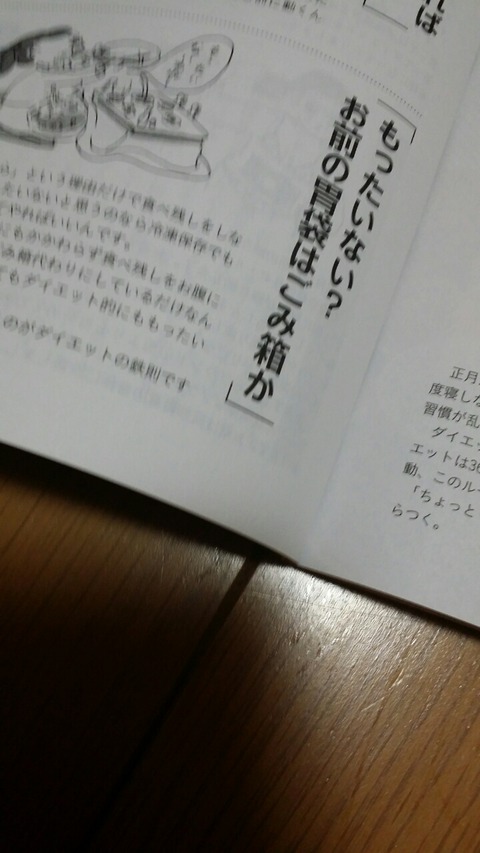 れば
「もったいない?
お前の胃袋はごみ箱か」
という理由だけで食べ残しをしな
たいないと思うのなら冷凍保存でも
てやればいいんです。
にもかかわらず食べ残しをお腹に
み箱代わりにしているだけなん
てもダイエット的にももったい
のがダイエットの鉄則です
正月
度寝しな
習慣が乱
ダイエッ
エットは36
動、このルー
「ちょっと
らつく。